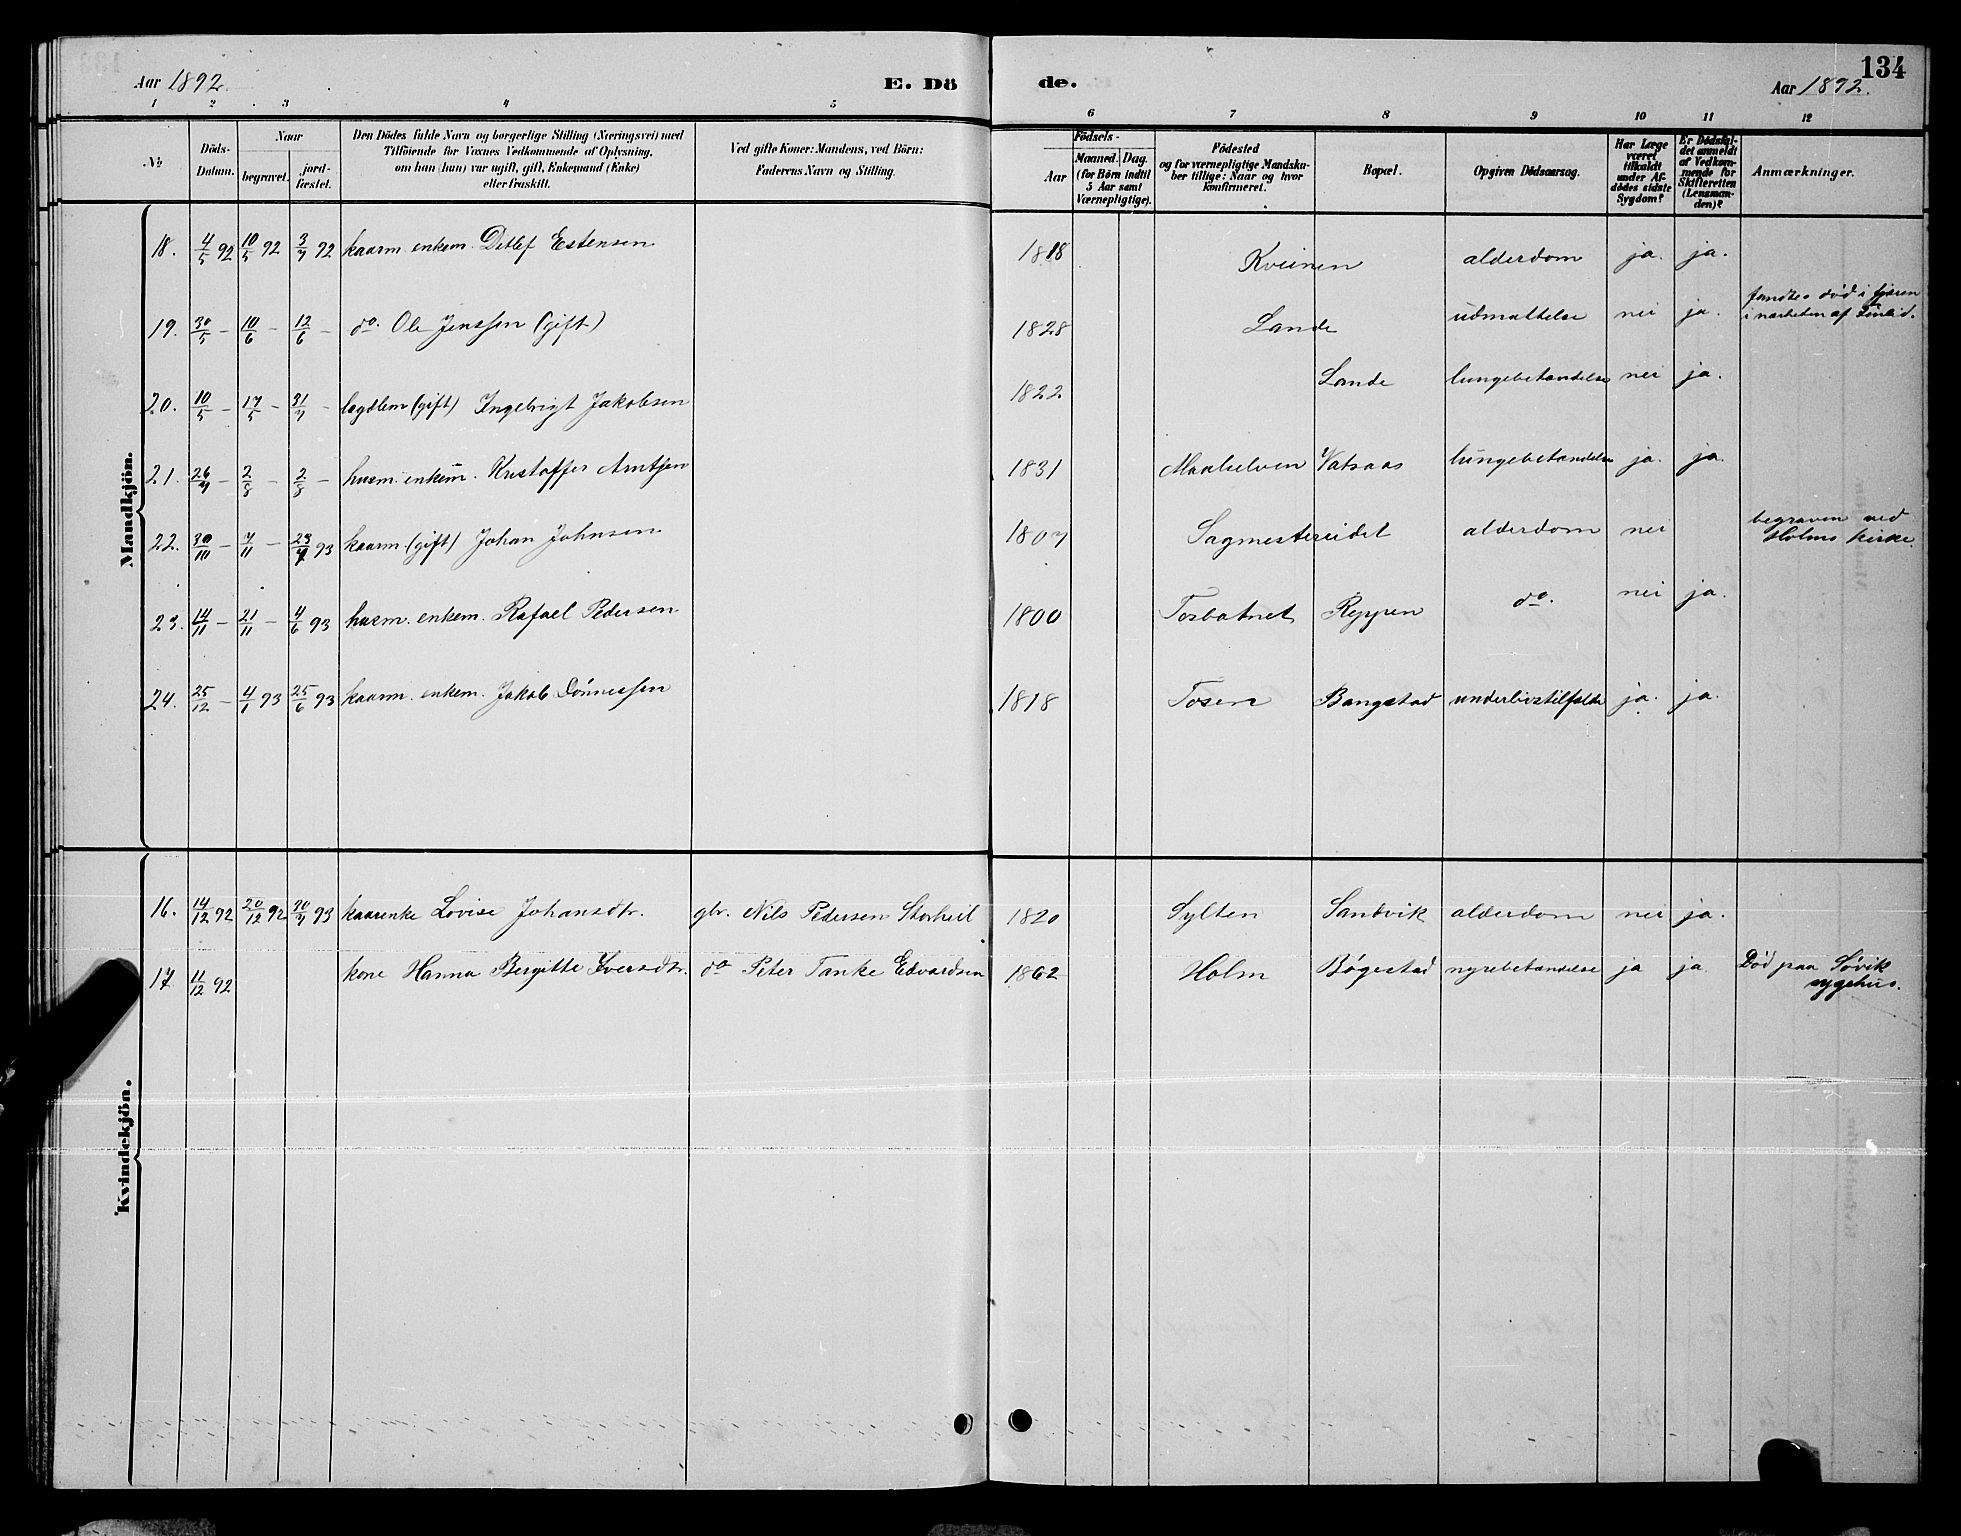 134
Aar 1892.
E. Dö
de.
Aar 1892.
1 2 3 4 5 6 7 8 9 10 11 12
№
Döds-
Datum.
Naar
begravet.
jord-
fæstet.
Den Dödes fulde Navn og borgerlige Stilling (Næringsvei) med
Tilföiende for Voxnes Vedkommende af Oplysning,
om han (hun) var ugift, gift, Enkemand (Enke)
eller fraskilt.
Ved gifte Koner: Mandens, ved Börn:
Faderens Navn og Stilling.
Födsels-
Aar
Maaned. Dag.
(for Börn indtil
5 Aar samt
Værnepligtige).
Födested
og for værnepligtige Mandska-
ber tillige: Naar og hvor
konfirmeret.
Bopæl.
Opgiven Dödsaarsag.
Har Læge
været
tilkaldt
under Af-
dödes sidste
Sygdom?
Er Dödsfal-
det anmeldt
af Vedkom-
mende for
Skifteretten
(Lensman-
den)?
Anmærkninger.
Mandkjön.
18. 4/5 92 10/5 92 3/7 92 kaarm. enkem. Detlef Estensen 1818 Kveinen alderdom ja. ja.
19. 30/5 – 10/6 – 12/6 – do. Ole Jenssen (gift) 1828 Lande udmattelse nei ja. fandtes död i fjæren
i nærheden af
20. 10/5 – 17/5 – 31/7 – lægdlem (gift) Ingebrigt Jakobsen 1822 Lande lungebetændelse nei ja.
21. 26/7 – 2/8 – 2/8 – husm. enkem. Kristoffer Arntsen 1831 Maalselven Vatsaas lungebetændelse ja. ja.
22. 30/10 – 7/11 – 23/7 93 kaarm (gift) Johan Johnsen 1807 Sagmestereidet alderdom nei begraven ved
Holms kirke.
23. 14/11 – 21/11 – 4/6 93 husm. enkem. Rafael Pedersen 1800 Tosbotnet Reppen do. nei ja.
24. 25/12 – 4/1 93 25/6 93 kaarm. enkem. Jakob Dönnessen 1818 Tosen Bangstad underlivstilfælde ja. ja.
Kvindekjön.
16. 14/12 92 20/12 92 30/7 93 kaarenke Lovise Johansdtr. gbr. Nils Pedersen Storheil 1820 Sylten Sandvik alderdom nei ja.
17 11/12 92 kone Hanna Bergitte Iversdtr. do Peter Tanke Edvardsen 1862 Holm Bøgestad nyrebetændelse ja ja. Død paa Søvik
sygehus.